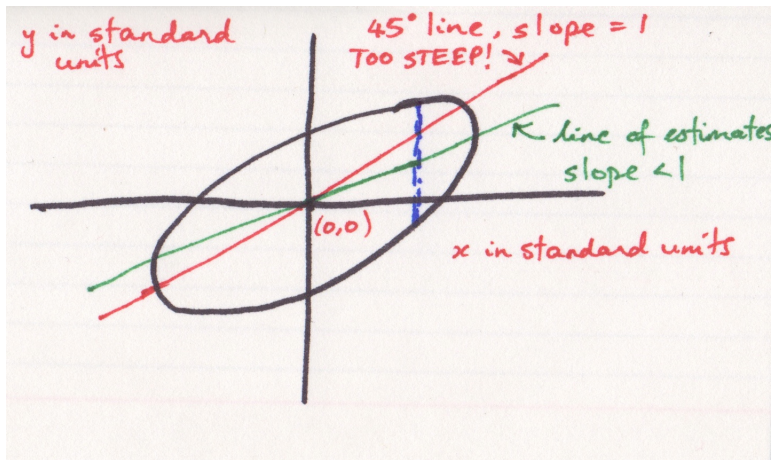 y in standard
units
45° line, slope = 1
TOO STEEP!
line of estimates
slope < 1
(0,0)
x in standard units